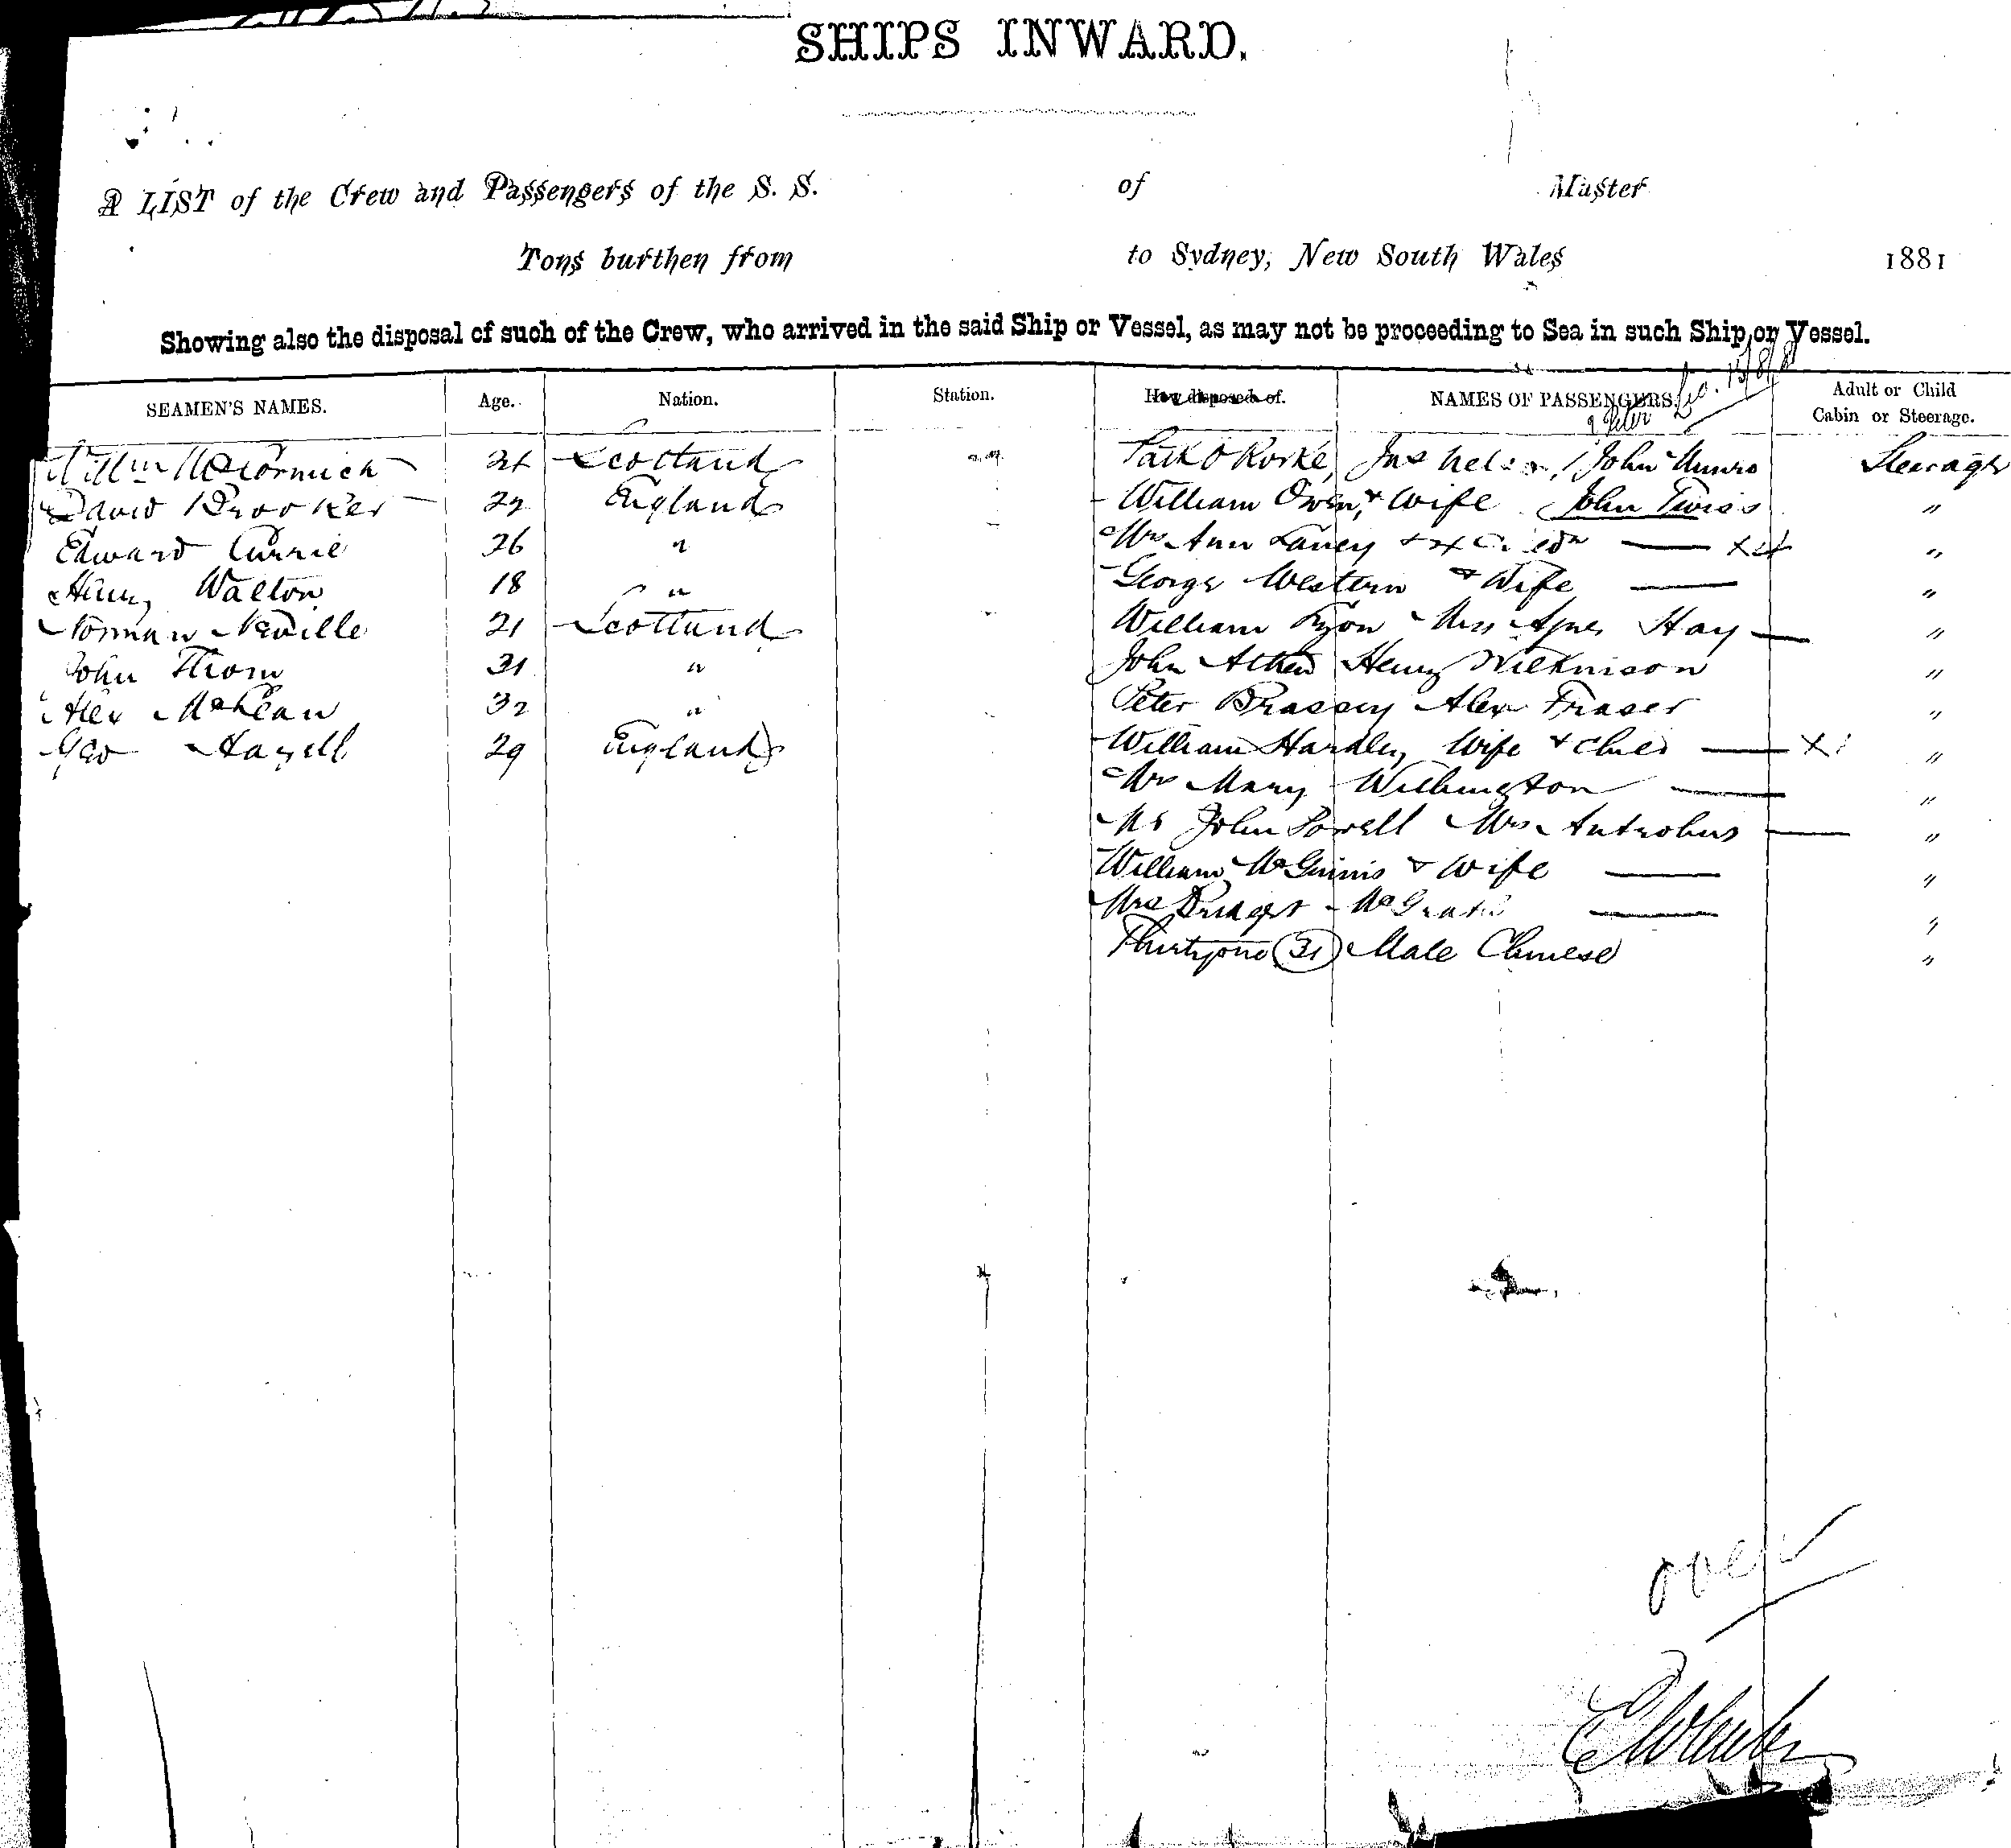 SHIPS INWARD.
A LIST of the Crew and Passengers of the S. S. of Master
Tons burthen from to Sydney, New South Wales 1881
Showing also the disposal of such of the Crew, who arrived in the said Ship or Vessel, as may not be proceeding to Sea in such Ship or Vessel.
SEAMEN'S NAMES. Age. Nation. Station. How disposed of. NAMES OF PASSENGERS. Adult or Child
Cabin or Steerage.
Willm McCormick Scotland Patk O Rorke, Jas Nelson, John Munro Steerage
David Brooker England William Owen, & Wife John Twiss "
Edward Currie 26 " Mrs Ann "
Henry Walton 18 " George Western & Wife "
Norman Neville 21 Scotland William Hay "
John Thom 31 " John Henry Wilkinson "
Alex McLean 32 " Peter Brassey Alex Fraser "
Geo 29 England William Wife & "
Mrs Mary "
Mr John Mrs Antrobus "
William McGuinis & Wife "
Mrs Bridget McGrath "
Thirtyone (31) Male Chinese "
over